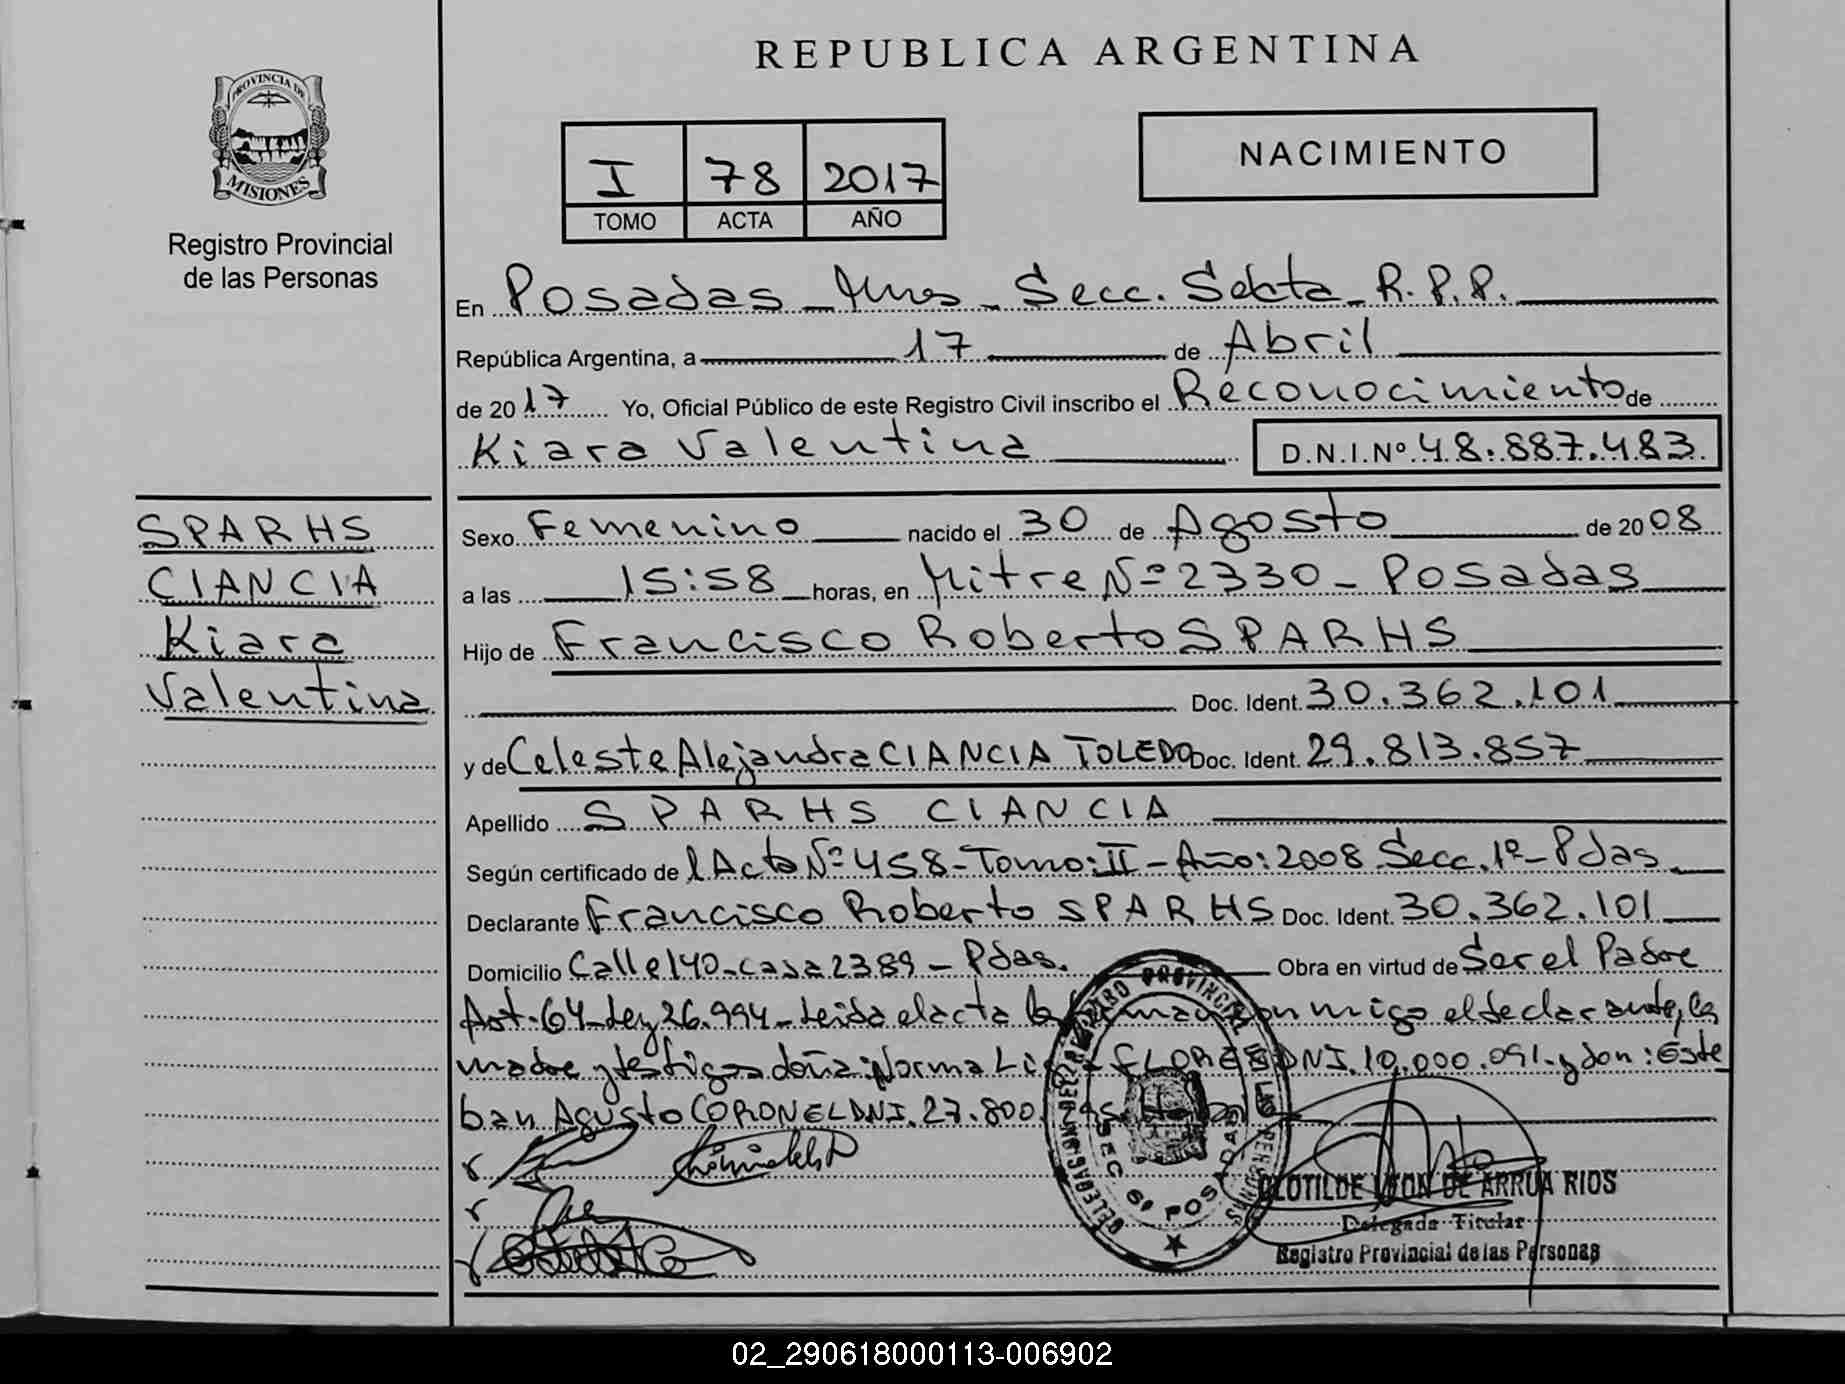 REPUBLICA ARGENTINA
PROVINCIA DE
MISIONES
Registro Provincial
de las Personas
I 78 2017
TOMO ACTA AÑO
NACIMIENTO
En Posadas - Mnes - Secc. Sexta - R.P.P.
República Argentina, a 17 de Abril
de 2017 Yo, Oficial Público de este Registro Civil inscribo el Reconocimiento de
Kiara Valentina D.N.I.Nº 48.887.483
SPARHS
CIANCIA
Kiara
Valentina
Sexo Femenino nacido el 30 de Agosto de 2008
a las 15:58 horas, en Mitre Nº 2330 - Posadas
Hijo de Francisco Roberto SPARHS
Doc. Ident. 30.362.101
y de Celeste Alejandra CIANCIA TOLEDO Doc. Ident. 29.813.857
Apellido SPARHS CIANCIA
Según certificado de l Acta Nº 458 - Tomo: II - Año: 2008 Secc. 1º - Pdas
Declarante Francisco Roberto SPARHS Doc. Ident. 30.362.101
Domicilio Calle 140 - casa 2389 - Pdas. Obra en virtud de Ser el Padre
Art. 64 - Ley 26.994 - Leida el acta la conmigo el declarante, la
madre y testigos doña: Norma FLORES DNI. 10.000.091 - y don: Este
ban Agusto CORONEL DNI. 27.800.
DELEGACION DEL REGISTRO PROVINCIAL DE LAS PERSONAS
SEC 6ª POSADAS
CLOTILDE LEON DE ARRUA RIOS
Delegada Titular
Registro Provincial de las Personas
02_290618000113-006902